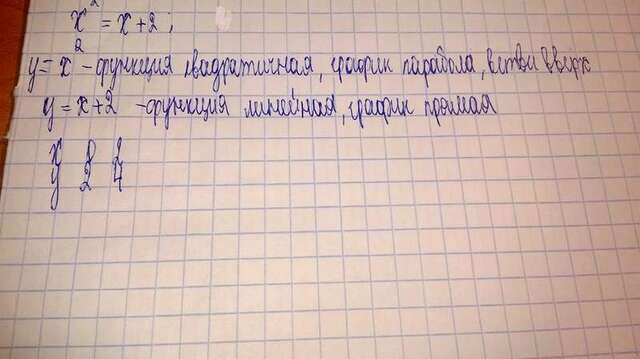 x² = x+2;
y = x² - функция квадратичная, график парабола, ветви вверх
y = x+2 - функция линейная, график прямая
x 0 2
y 2 4